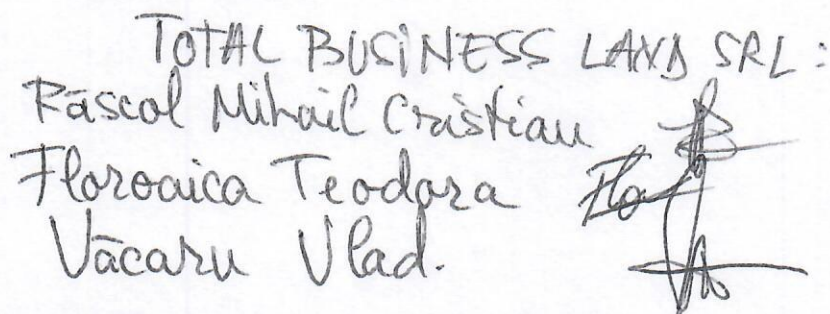 TOTAL BUSINESS LAND SRL:
Răscol Mihail Cristian
Floroaica Teodora Flo
Văcaru Vlad.